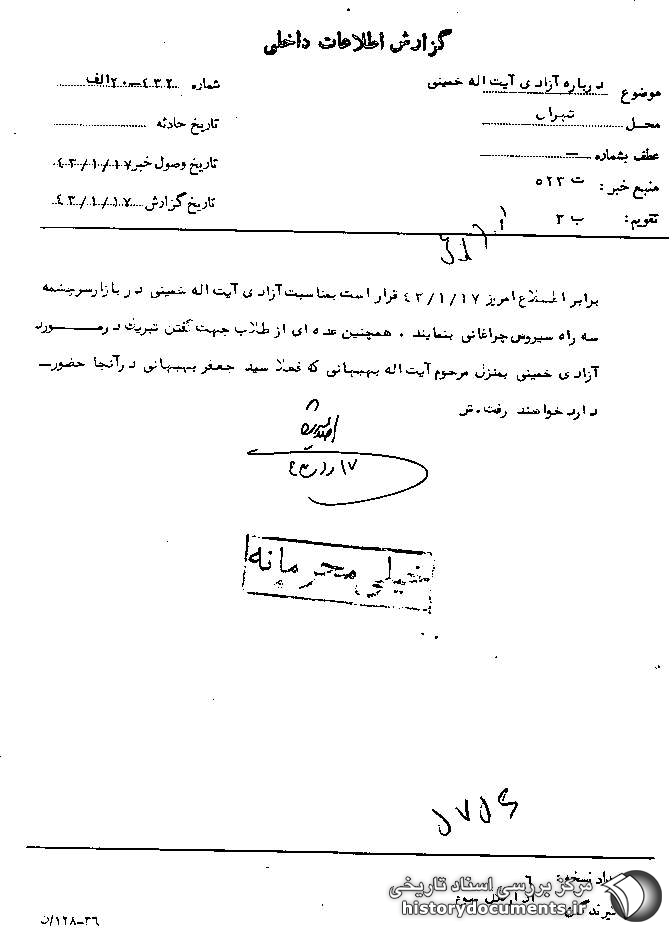 گزارش اطلاعات داخلی
موضوع درباره آزادی آیت اله خمینی
شماره ۴۳۲-۲۰الف
محل تهران
تاریخ حادثه
عطف بشماره —
تاریخ وصول خبر ۴۳/۱/۱۷
منبع خبر: ت ۵۲۳
تاریخ گزارش ۴۳/۱/۱۷
تقویم: ب ۳
برابر اطلاع امروز ۴۳/۱/۱۷ قرار است بمناسبت آزادی آیت اله خمینی در بازار سرچشمه
سه راه سیروس چراغانی بنمایند . همچنین عده ای از طلاب جهت گفتن تبریک در مورد
آزادی خمینی بمنزل مرحوم آیت اله بهبهانی که فعلا سید جعفر بهبهانی در آنجا حضور
دارد خواهند رفت. ش
خیلی محرمانه
نسخه: ۶
گیرندگان:
۳۶-۱۲۸/ن
مرکز بررسی اسناد تاریخی
historydocuments.ir